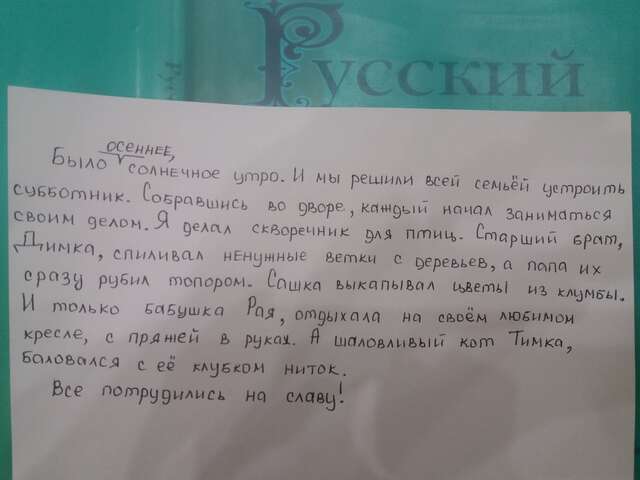 Русский
осеннее,
Было солнечное утро. И мы решили всей семьёй устроить
субботник. Собравшись во дворе, каждый начал заниматься
своим делом. Я делал скворечник для птиц. Старший брат,
Димка, спиливал ненужные ветки с деревьев, а папа их
сразу рубил топором. Сашка выкапывал цветы из клумбы.
И только бабушка Рая, отдыхала на своём любимом
кресле, с пряжей в руках. А шаловливый кот Тимка,
баловался с её клубком ниток.
Все потрудились на славу!